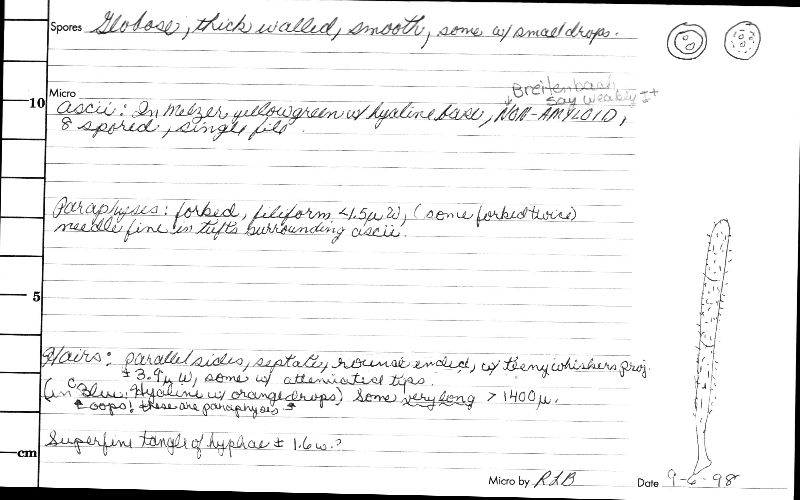 Spores Globose, thick walled, smooth, some w/ small drops.
Breitenbach
say weakly I+
Micro
10
ascii: In Melzer yellowgreen w/ hyaline base, NON-AMYLOID,
8 spored, single file.
Paraphyses: forked, filiform <1.5µ W, (some forked twice)
needle fine in tufts surrounding ascii.
5
Hairs: parallel sides, septate, round ended, w/ teeny whiskers proj.
± 3.9µ w, some w/ attenuated tips.
(in C Blue: Hyaline w/ orange drops) Some very long > 1400µ.
oops! these are paraphyses
Superfine tangle of hyphae ± 1.6 w.?
cm
Micro by RLB Date 9-6-98